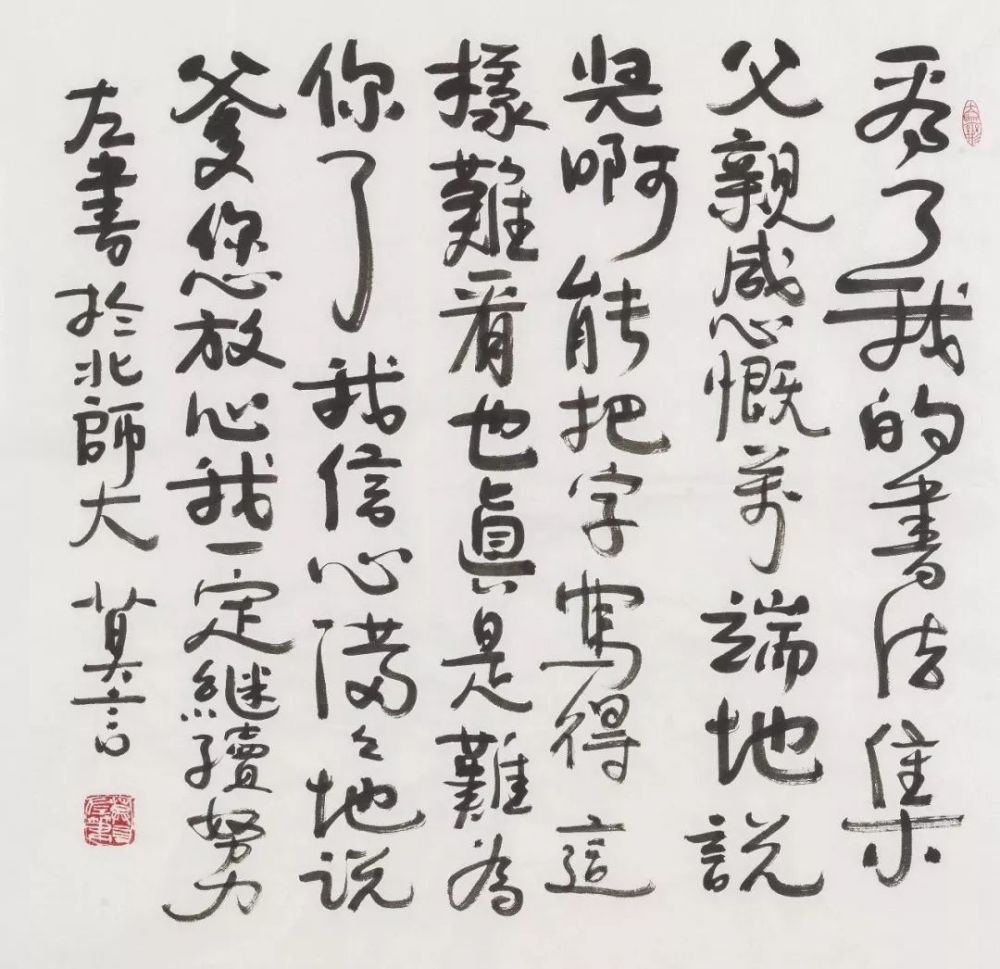 看了我的書法集
父親感慨萬端地説
兒啊能把字寫得這
樣難看也眞是難為
你了我信心滿々地说
爹您放心我一定继續努力
左書於北師大 莫言